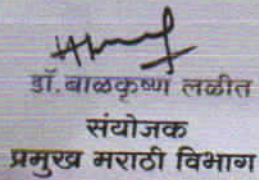 डॉ. बाळकृष्ण लळीत
संयोजक
प्रमुख मराठी विभाग